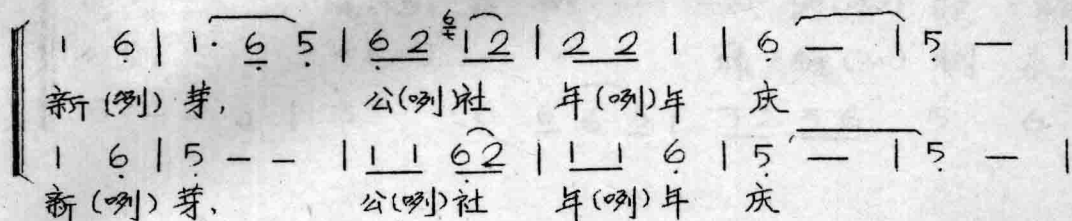 1 6̣ | 1· 6̣ 5̣ | 6̣ 2 6 1 2 | 2 2 1 | 6̣ — | 5̣ — |
新(咧)芽, 公(咧)社 年(咧)年 庆
1 6̣ | 5̣ — — | 1 1 6̣ 2 | 1 1 6̣ | 5̣ — | 5̣ — |
新(咧)芽, 公(咧)社 年(咧)年 庆